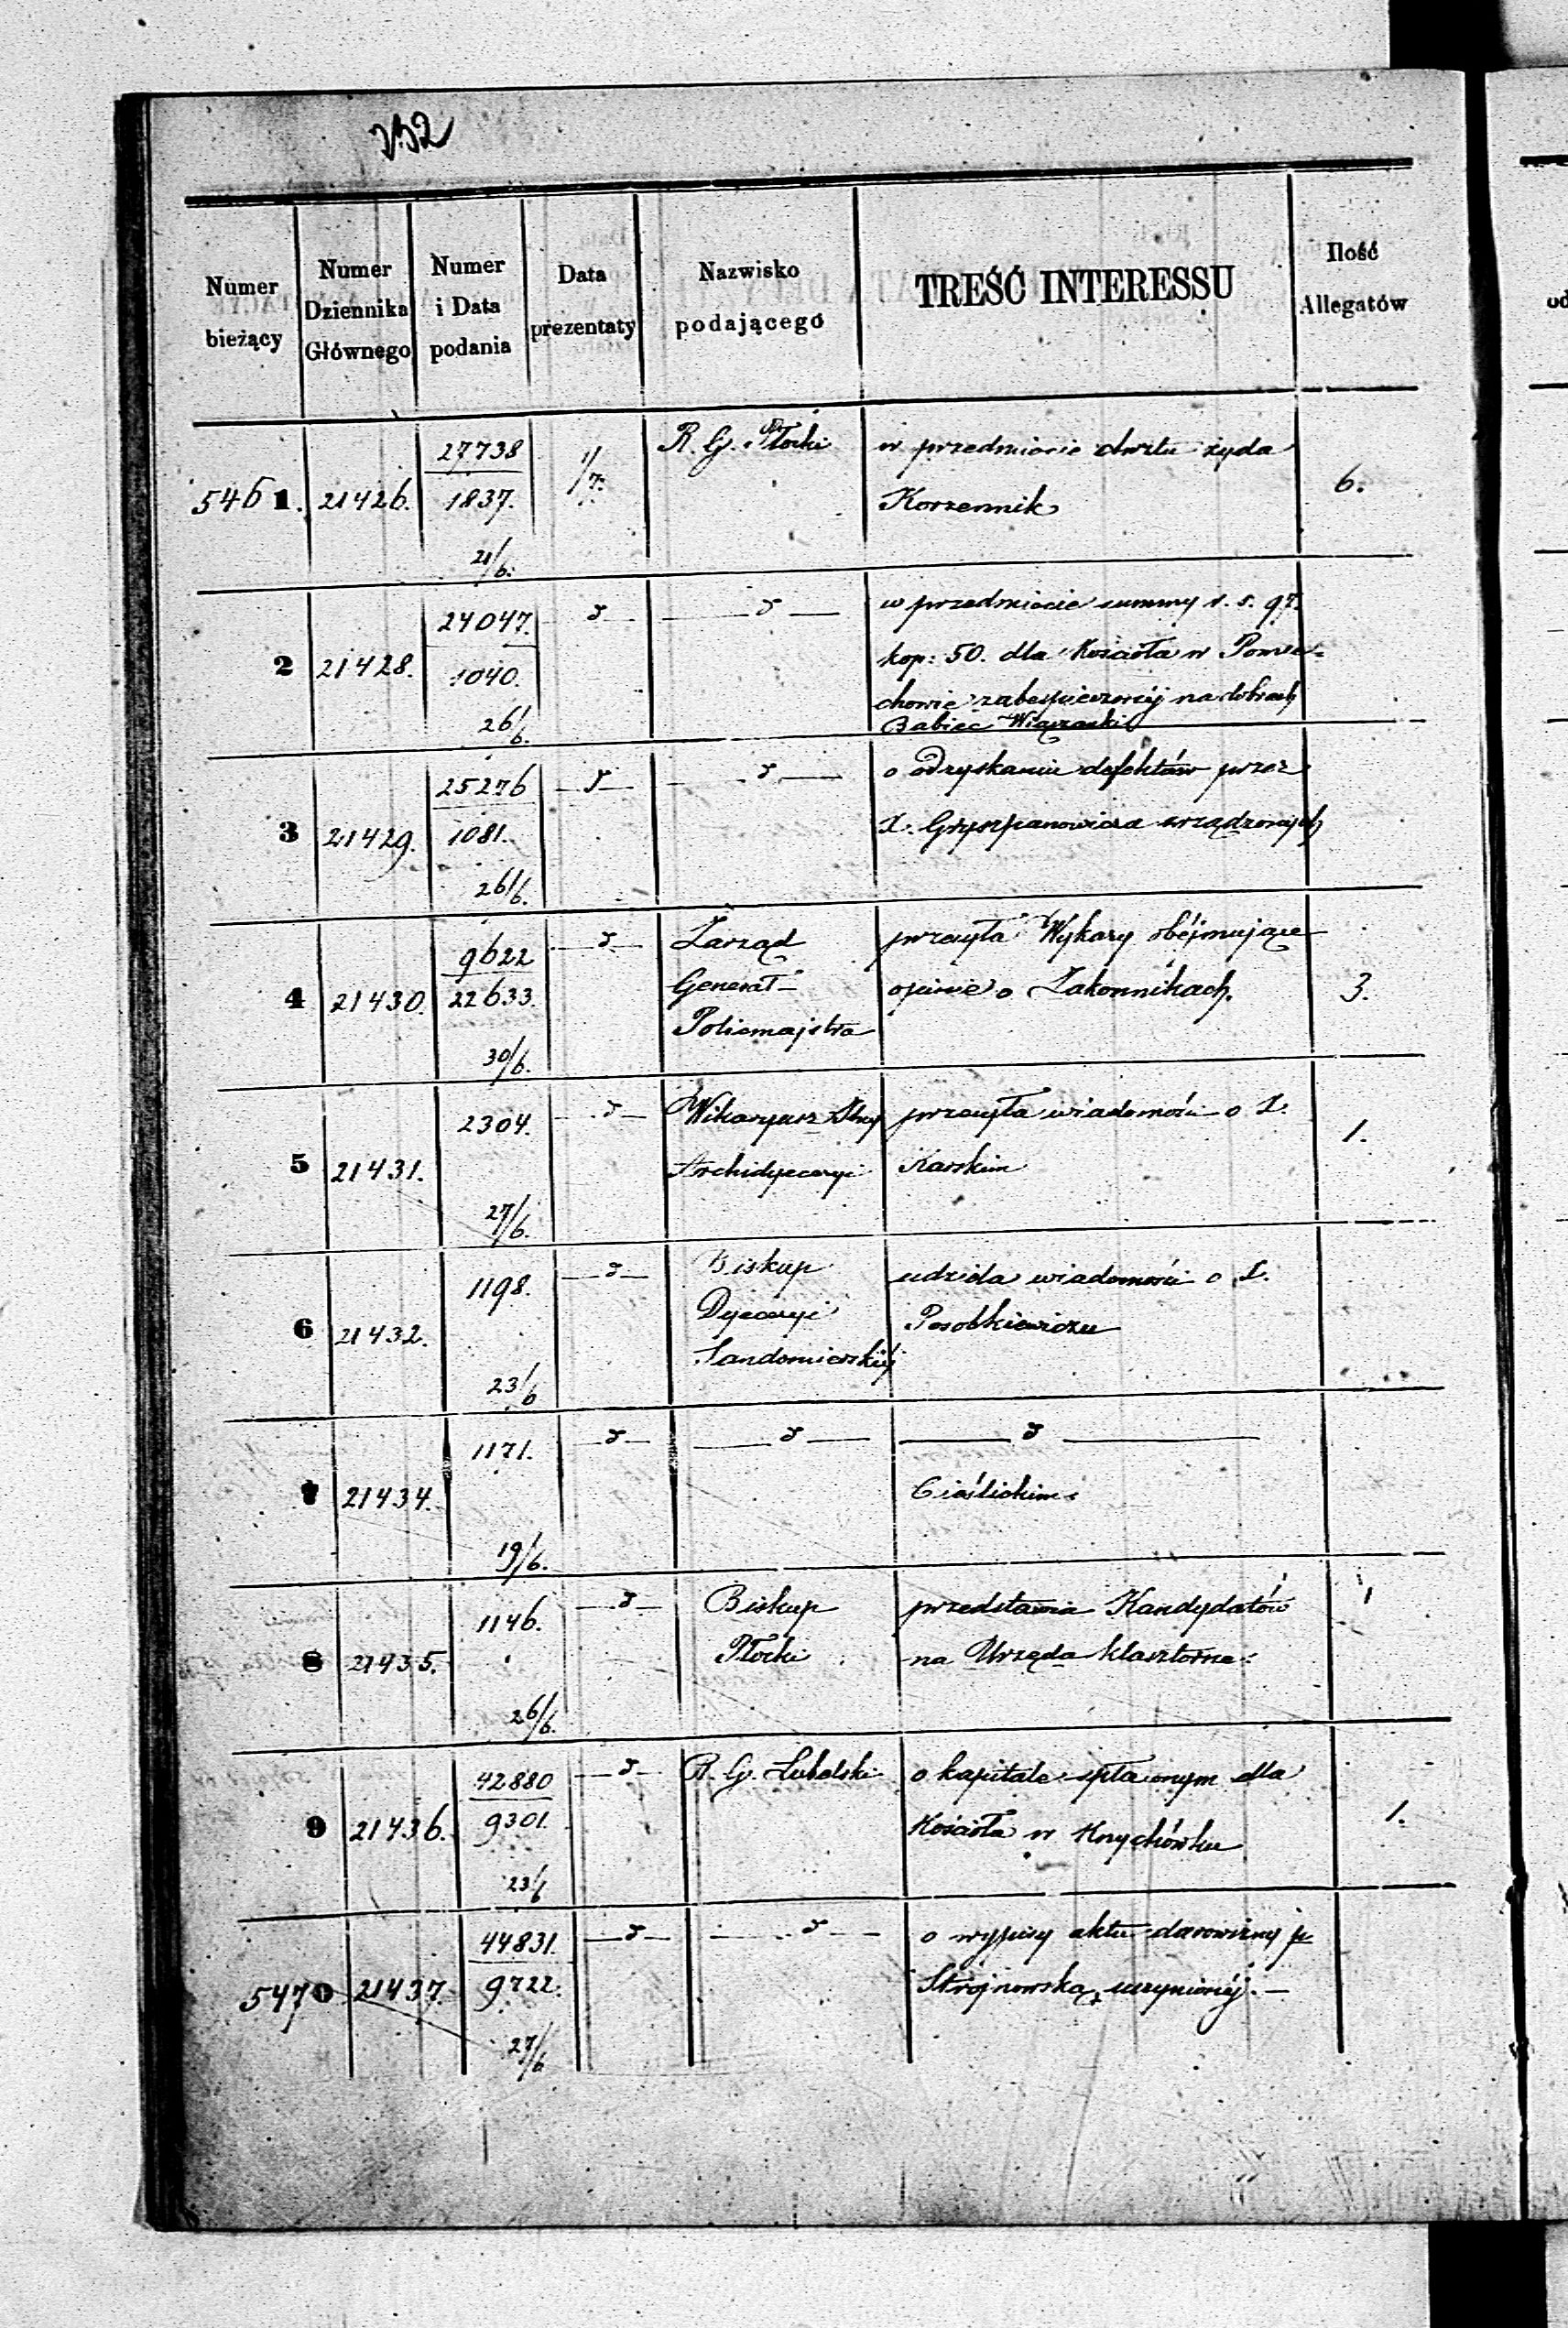 Numer bieżący | Numer Dziennika Głównego | Numer i Data podania | Data prezentaty | Nazwisko podającego | TREŚĆ INTERESSU | Ilość Allegatów
5461. | 21426. | 27738 / 1837. 21/6. | 1/7. | R. G. Płocki | w przedmiocie chrztu żyda
Korzennik | 6.
2 | 21428. | 24047. / 1040. 26/6. | — d — | — d — | w przedmiocie summy r. s. 97.
kop: 50. dla Kościoła w Pomie-
chowie zabespieczonéj na dobrach
Babiec Wiązanki
3 | 21429. | 25276 / 1081. 26/6. | — d — | — d — | o odzyskaniu defektów przez
X. Gryszpanowicza zrządzonych
4 | 21430. | 9622 / 22633. 30/6. | — d — | Zarząd
Generał-
Policmajstra | przesyła Wykazy obéjmujące
opinie o Zakonnikach. | 3.
5 | 21431. | 2304. 27/6. | — d — | Wikaryusz
Archidyecezyi | przesyła wiadomości o X.
Karskim | 1.
6 | 21432. | 1198. 23/6 | — d — | Biskup
Dyecezyi
Sandomierskiéj | udziela wiadomości o X.
Posobkiewiczu
7 | 21434. | 1171. 19/6. | — d — | — d — | — d —
Cieślickim.
8 | 21435. | 1146. 26/6. | — d — | Biskup
Płocki | przedstawia Kandydatów
na Urzęda klasztorne. | 1
9 | 21436. | 42880 / 9301. 23/6 | — d — | R. G. Lubelski | o kapitale spłaconym dla
Kościoła w Knychówku | 1.
5470 | 21437. | 44831. / 9722. 27/6 | — d — | — d — | o wypisy aktu darowizny p
Strojnowską uczynionéj. —